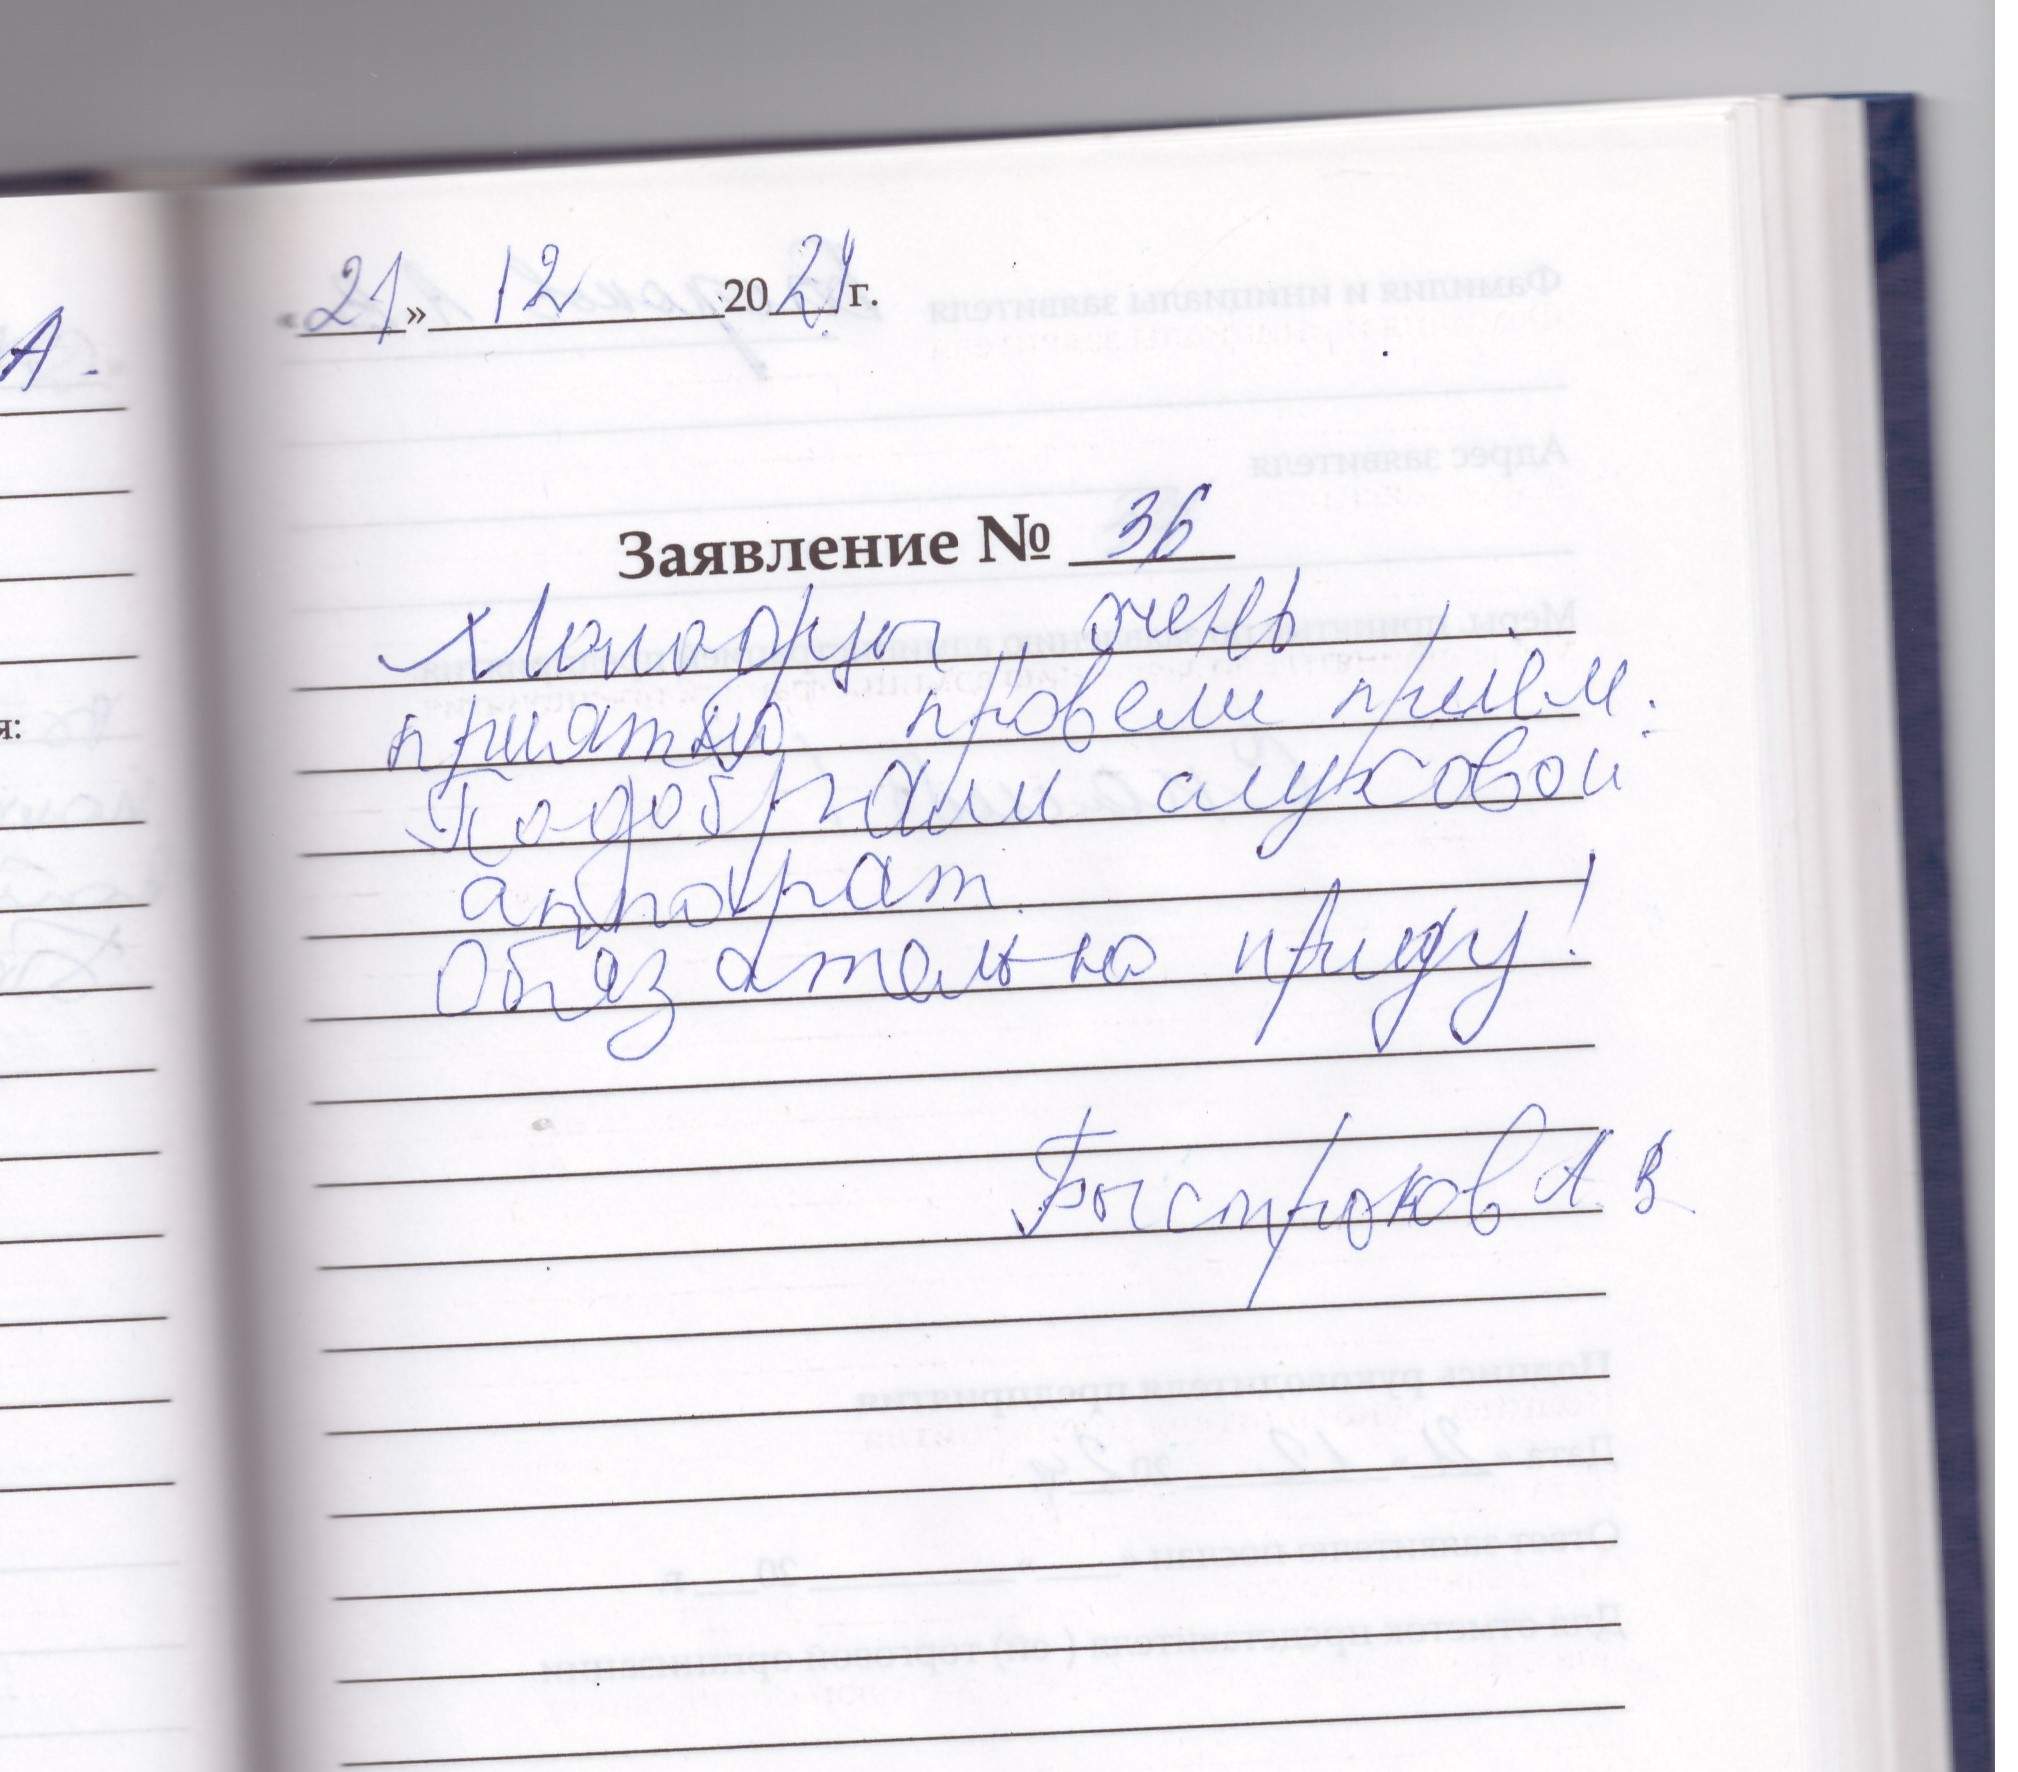 «21» 12 2024 г.
А.
я:
Заявление № 36
Молодцы очень
приятно провели приём.
Подобрали слуховой
аппарат.
Обязательно приду!
Быстроков А. В